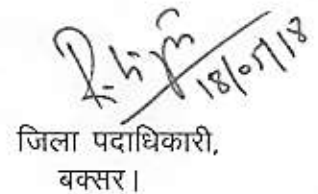 18/07/18
जिला पदाधिकारी,
बक्सर।